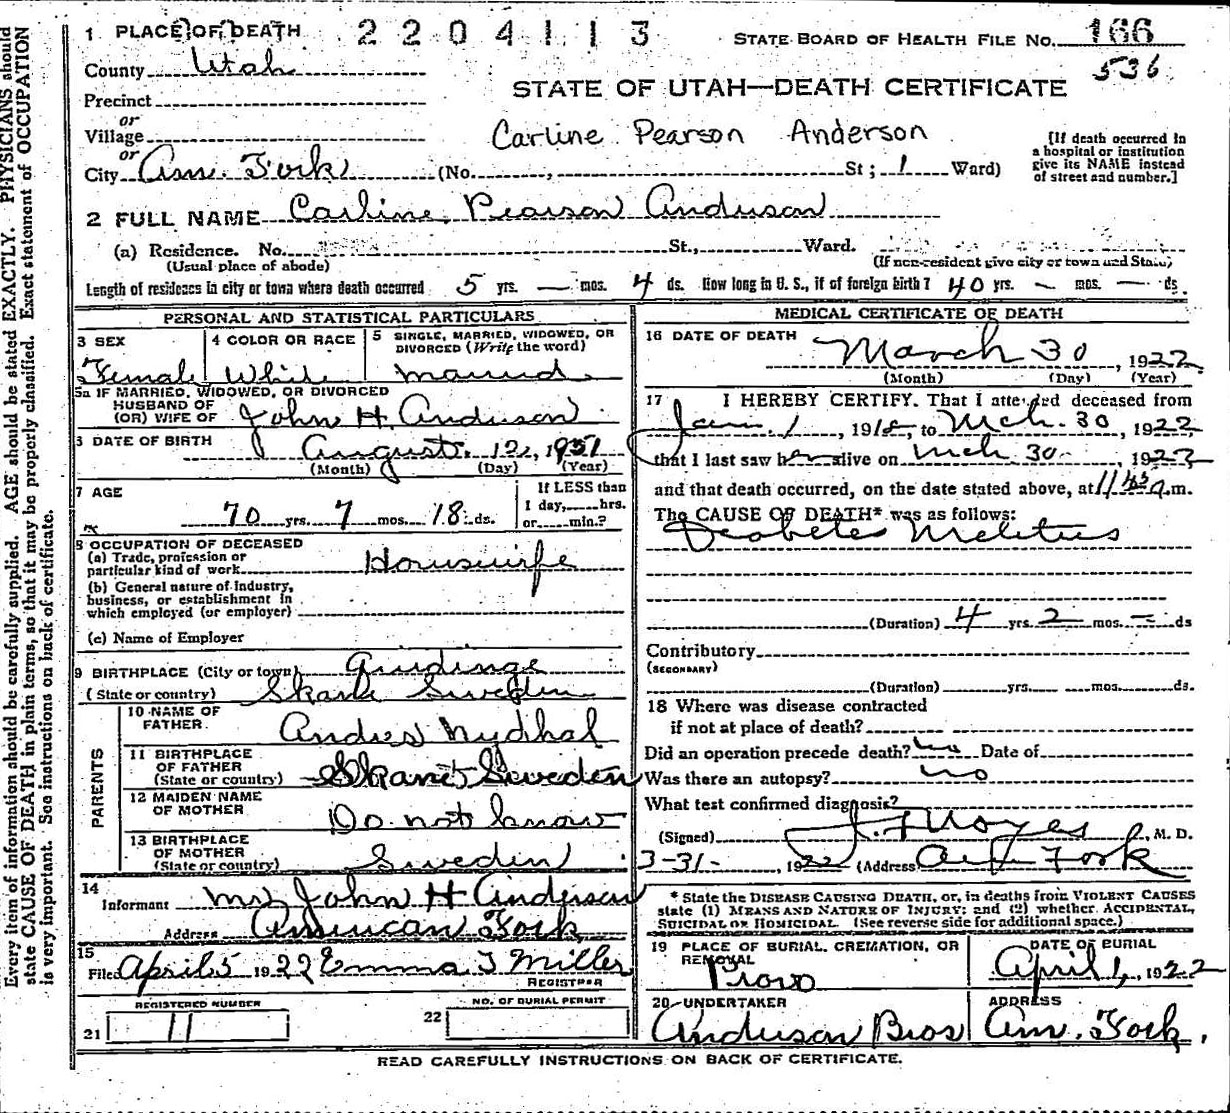 1 PLACE OF DEATH 2204113 STATE BOARD OF HEALTH FILE No. 166
County Utah 536
STATE OF UTAH—DEATH CERTIFICATE
Precinct
or
Village Carline Pearson Anderson
or
City Am. Fork (No. , St ; 1 Ward)
[If death occurred in
a hospital or institution
give its NAME instead
of street and number.]
2 FULL NAME Carline Pearson Anderson
(a) Residence. No. St., Ward.
(Usual place of abode) (If non-resident give city or town and State)
Length of residence in city or town where death occurred 5 yrs. — mos. 4 ds. How long in U. S., if of foreign birth? 40 yrs. — mos. — ds.
PERSONAL AND STATISTICAL PARTICULARS
3 SEX
Female
4 COLOR OR RACE
White
5 SINGLE, MARRIED, WIDOWED, OR
DIVORCED (Write the word)
married
5a IF MARRIED, WIDOWED, OR DIVORCED
HUSBAND OF
(OR) WIFE OF John H. Anderson
6 DATE OF BIRTH August. 12, 1851
(Month) (Day) (Year)
7 AGE
70 yrs. 7 mos. 18 ds.
If LESS than
1 day, hrs.
or min.?
8 OCCUPATION OF DECEASED
(a) Trade, profession or
particular kind of work Housewife
(b) General nature of industry,
business, or establishment in
which employed (or employer)
(c) Name of Employer
9 BIRTHPLACE (City or town)
(State or country) Skane Sweden
PARENTS
10 NAME OF
FATHER. Andres Nydhal
11 BIRTHPLACE
OF FATHER
(State or country) Skane Sweden
12 MAIDEN NAME
OF MOTHER Do not know
13 BIRTHPLACE
OF MOTHER
(State or country) Sweden
14
Informant Mr John H Anderson
Address American Fork
15
Filed April 5 1922 Emma J Miller
REGISTRAR
REGISTERED NUMBER
21 11
NO. OF BURIAL PERMIT
22
MEDICAL CERTIFICATE OF DEATH
16 DATE OF DEATH
March 30, 1922
(Month) (Day) (Year)
17 I HEREBY CERTIFY. That I attended deceased from
Jan. 1, 1918, to Mch. 30, 1922,
that I last saw her alive on Mch 30 1922
and that death occurred, on the date stated above, at 11 45 a.m.
The CAUSE OF DEATH* was as follows:
Diabetes Melitus
(Duration) 4 yrs 2 mos. – ds
Contributory
(SECONDARY)
(Duration) yrs. mos. ds.
18 Where was disease contracted
if not at place of death?
Did an operation precede death? no Date of
Was there an autopsy? no
What test confirmed diagnosis?
(Signed) J. F. Noyes, M. D.
3-31-, 1922 (Address) Am Fork
* State the DISEASE CAUSING DEATH, or, in deaths from VIOLENT CAUSES
state (1) MEANS AND NATURE OF INJURY; and (2) whether ACCIDENTAL,
SUICIDAL OR HOMICIDAL. (See reverse side for additional space.)
19 PLACE OF BURIAL, CREMATION, OR
REMOVAL
Provo
DATE OF BURIAL
April 1, 1922
20 UNDERTAKER
Anderson Bros
ADDRESS
Am. Fork,
READ CAREFULLY INSTRUCTIONS ON BACK OF CERTIFICATE.
Every item of information should be carefully supplied. AGE should be stated EXACTLY. PHYSICIANS should
state CAUSE OF DEATH in plain terms, so that it may be properly classified. Exact statement of OCCUPATION
is very important. See instructions on back of certificate.